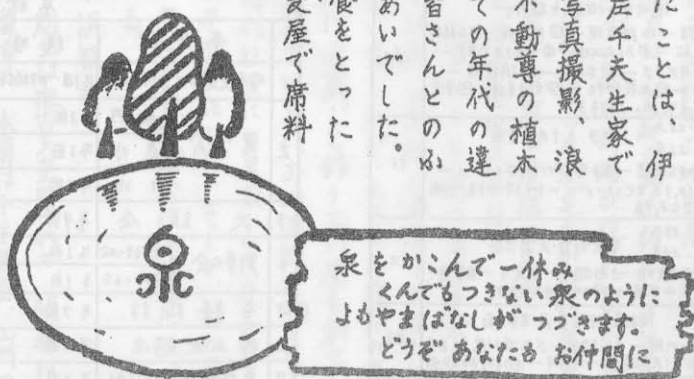 たことは、伊
左千夫生家で
写真撮影、浪
不動尊の植木
ての年代の違
皆さんとのふ
あいでした。
食をとった
屋で席料
泉をかこんで 休み
くんでもつきない泉のように
よもやまばなしがつづきます。
どうぞ あなたも お仲間に